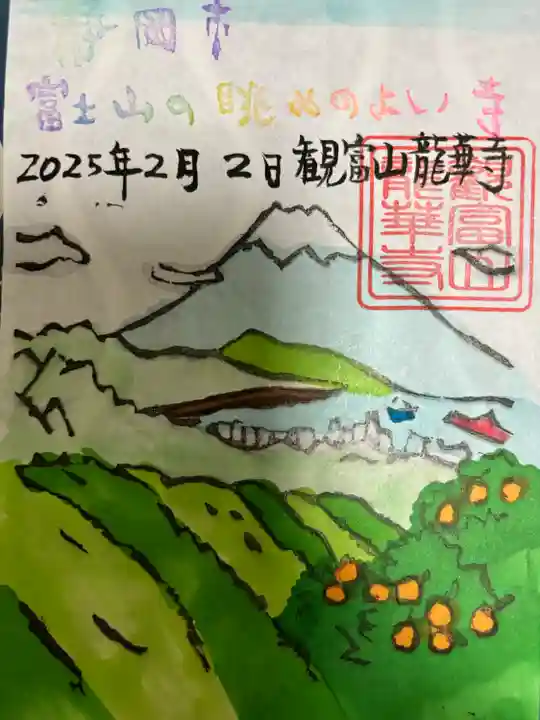 静岡市
富士山の眺めのよい寺
2025年2月2日観富山龍華寺
觀富山
龍華寺